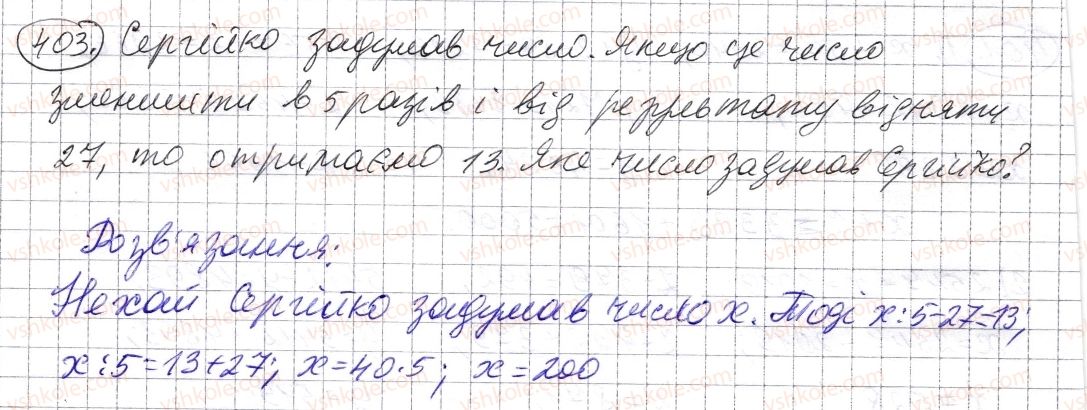 403. Сергійко задумав число. Якщо це число
зменшити в 5 разів і від результату відняти
27, то отримаємо 13. Яке число задумав Сергійко?
Розв'язання:
Нехай Сергійко задумав число x. Тоді x:5-27=13;
x:5=13+27; x=40·5; x=200